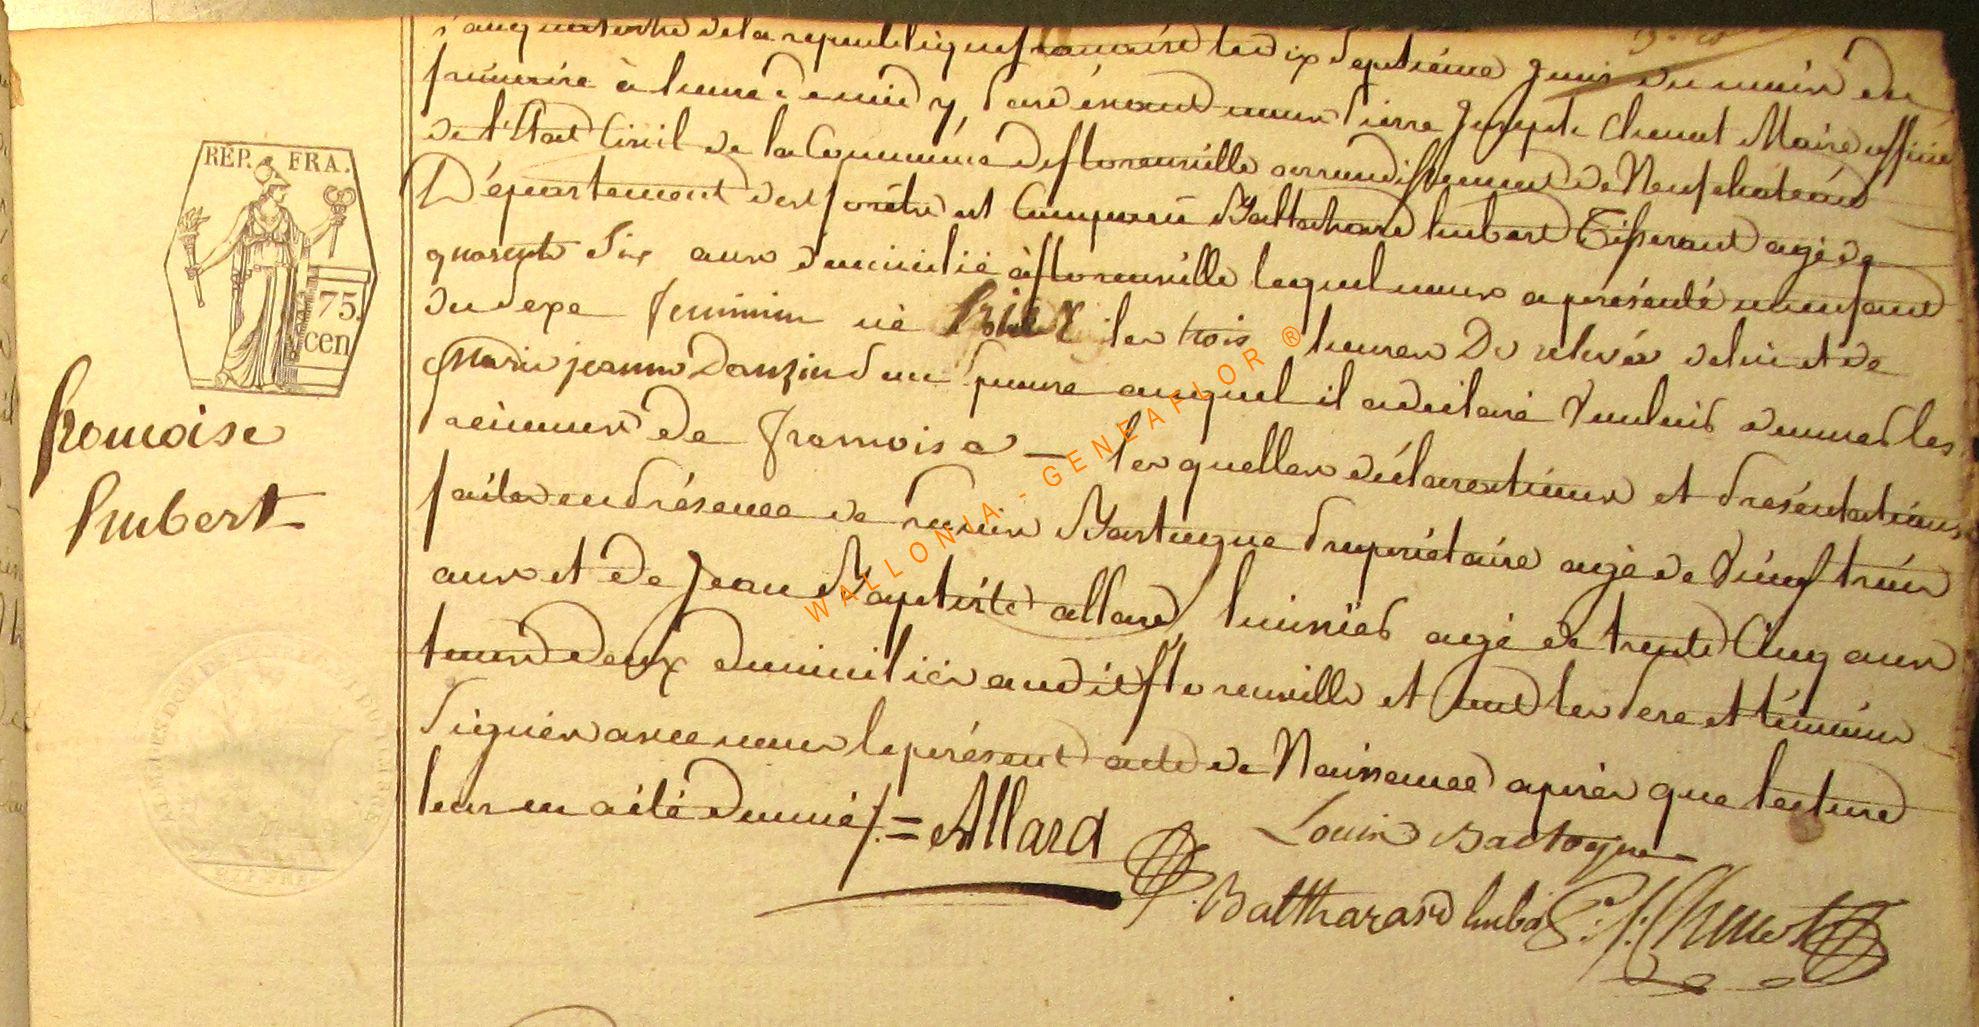 REP. FRA.
75.
cen
françoise
humbert
l'an quatorze de la republique francaise le dix septieme jour du mois de
frimaire à heure de midy, pardevant nous pierre Joseph Chenot Maire officier
de l'Etat Civil de la Commune deflorenville arrondissement de Neufchateau
Département des foréts est Comparu Balthazare humbert Tisserant agé de
quarente Six ans domicilié àflorenville lequel nous a présenté un enfant
du Sexe feminin né hier les trois heures De relevée de lui et de
Marie jeanne Son Epouse auquel il a declaré Vouloir donner les
prénoms de francoise — lesquelles déclarations et présentations
faite en présence de Bastogne propriétaire agé de Vingt trois
ans et de Jean Baptiste allard agé de trente Cinq ans
tous deux domiciliés audit florenville et ont les pere et témoins
Signés avec nous le présent acte de Naissance après que lecture
leur en a été donnée/. = Allard
Louis Bastogne
Balthazard humbe P: J: Chenot
WALLONIA - GENEAFLOR ®